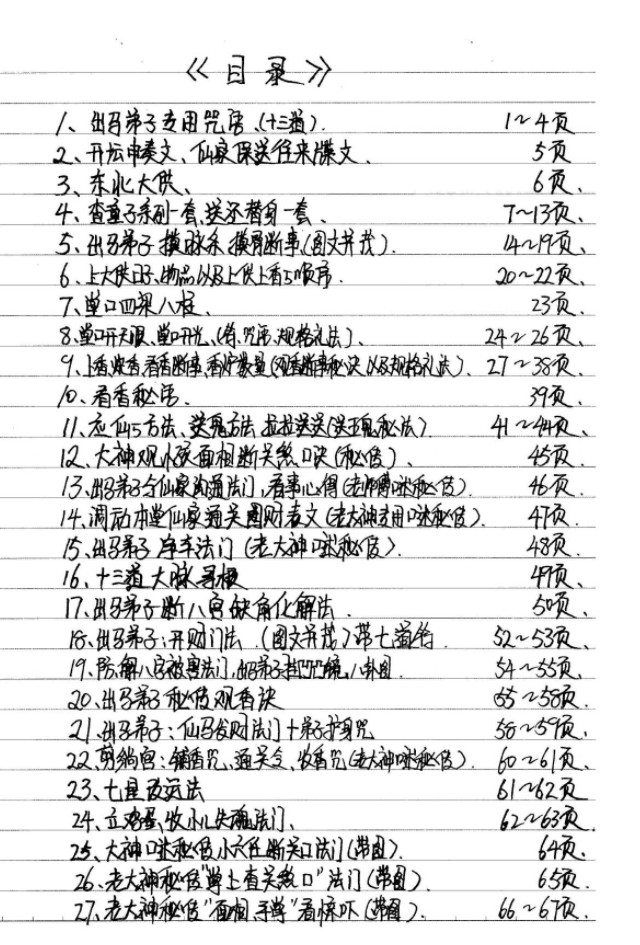 《目录》
1、出马弟子专用咒语、(十三道). 1~4页
2、开坛申奏文、仙家保送任来牒文、 5页
3、东北大供、 6页、
4、查童子系列一套、送还替身一套、 7~13页、
5、出马弟子摸脉系、摸骨断事、(图文并茂). 14~19页、
6、上大供日子、物品以及上供上香5顺序. 20~22页、
7、堂口四梁八柱、 23页、
8、堂口开天眼、堂口开光、(符、咒语、规格礼法)、 24~26页、
9、上香、烧香、看香断事、香炉数量(观香断事秘诀以及规格礼法)、 27~38页、
10、看香秘语、 39页、
11、应仙5方法、送鬼方法 拉拉送送(送王鬼秘法)、 41~44页、
12、大神观小孩面相断关煞口诀(秘传)、 45页、
13、出马弟子与仙家沟通法门,看事心得(老师傅口述秘传). 46页、
14、调动本堂仙家通关图财表文(老大神专用口述秘传)、 47页、
15、出马弟子净车法门(老大神口述秘传)、 48页、
16、十三道大脉寻根 49页、
17、出马弟子断八宫缺角化解法. 50页、
18、出马弟子:开财门法、(图文并茂)带七道符、 52~53页、
19、防、解八字被害法门,出马弟子 镜,八卦图 54~55页、
20、出马弟子秘传观香诀 55~58页、
21、出马弟子:仙马发财法门+弟子护身咒 58~59页、
22、 :铺香咒、通关令、收香咒(老大神口述秘传). 60~61页、
23、七星改运法 61~62页
24、立鸡蛋,收小儿失魂法门、 62~63页、
25、大神口述秘传小六任断关口法门(带图). 64页、
26、老大神秘传"掌上查关煞口"法门(带图). 65页、
27、老大神秘传"面相、手学"看惊吓(带图). 66~67页、